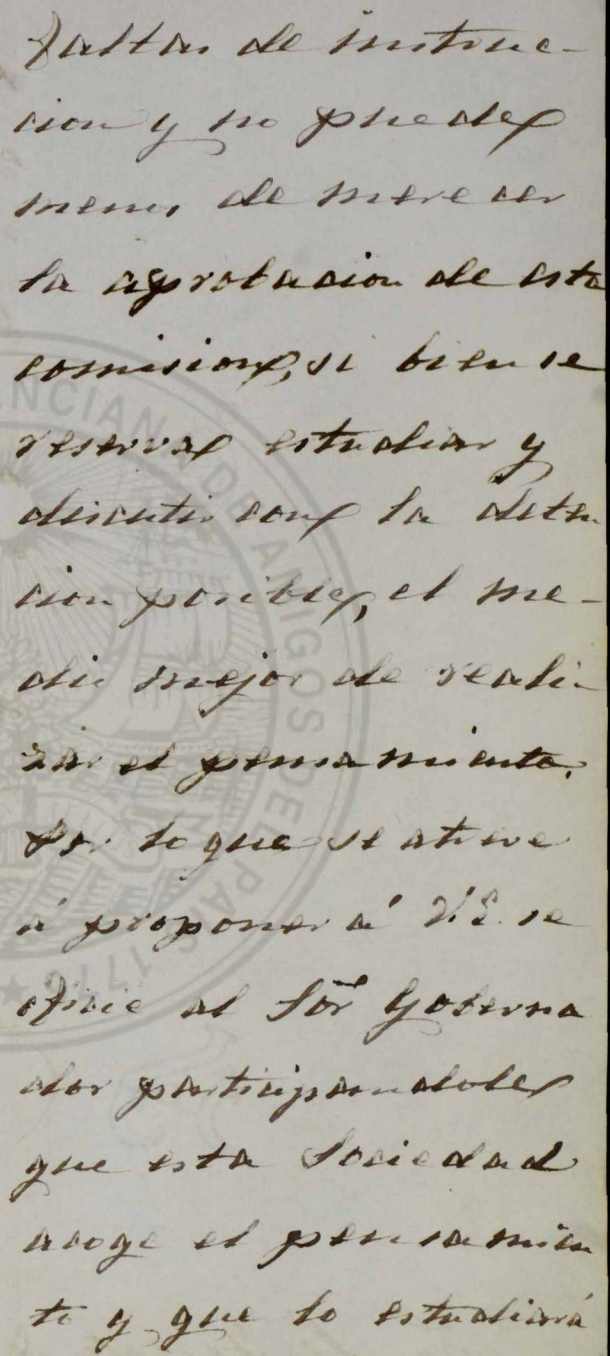 faltas de instruc-
cion y no puede
menos de merecer
la aprobacion de esta
comision, si bien se
reserva estudiar y
discutir con la deten
cion posible, el me-
dio mejor de reali-
zar el pensamiento.
Por lo que se atreve
á proponer á V.E. se
oficie al Sor Goberna
dor participandole
que esta Sociedad
acoge el pensamien
to y que lo estudiará